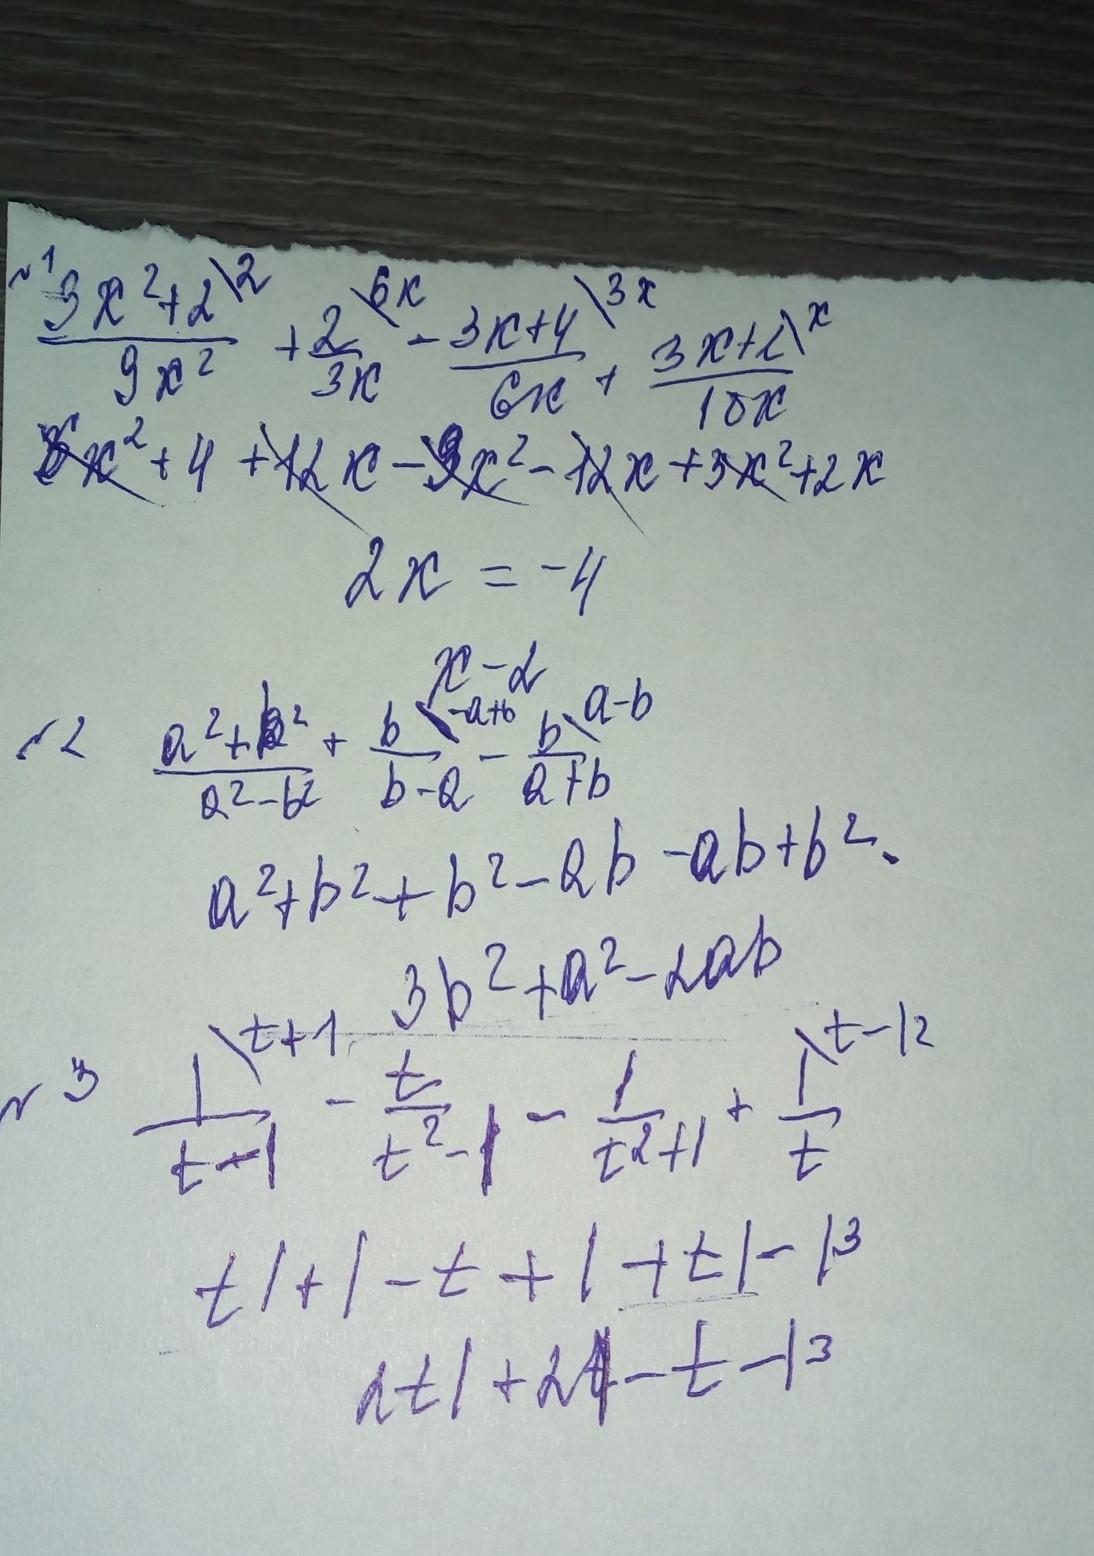 №1 (3x²+2)\2 / 9x² + 2\6x / 3x - (3x+4)\3x / 6x + (3x+2)\x / 18x
x² + 4 + 12x - 9x² - 12x + 3x² + 2x
2x = -4
x - 2
№2 (a²+b²) / (a²-b²) + b\-a+b / (b-a) - b\a-b / (a+b)
a²+b²+b²-ab-ab+b².
3b²+a²-2ab
№3 1\t+1 / (t-1) - t / (t²-1) - 1 / (t²+1) + 1\t-1² / t
t1+1-t+1+t1-1³
2t1+21-t-1³